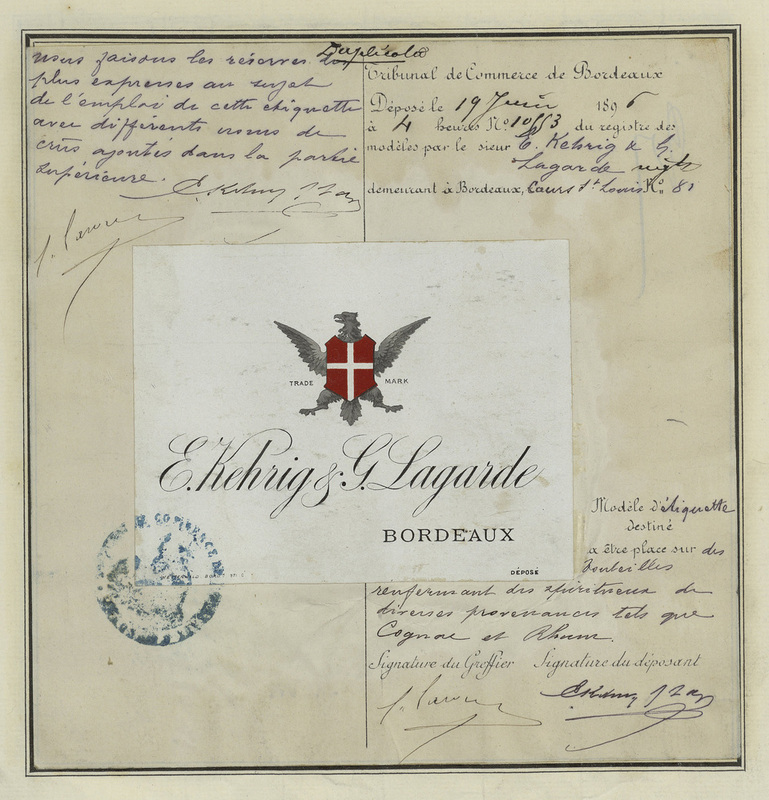 Duplicata
nous faisons les réserves les
plus expresses au sujet
de l'emploi de cette étiquette
avec différents noms de
crûs ajoutés dans la partie
supérieure.
Tribunal de Commerce de Bordeaux
Déposé le 19 Juin 1896
à 4 heures No du registre des
modèles par le sieur E. Kehrig & G.
Lagarde
demeurant à Bordeaux, Cours St Louis No 81
TRADE MARK
E. Kehrig & G. Lagarde
BORDEAUX
DÉPOSÉ
Modèle d'étiquette
destiné
a être place sur des
bouteilles
renfermant des spiritueux de
diverses provenances tels que
Cognac et Rhum.
Signature du Greffier Signature du déposant